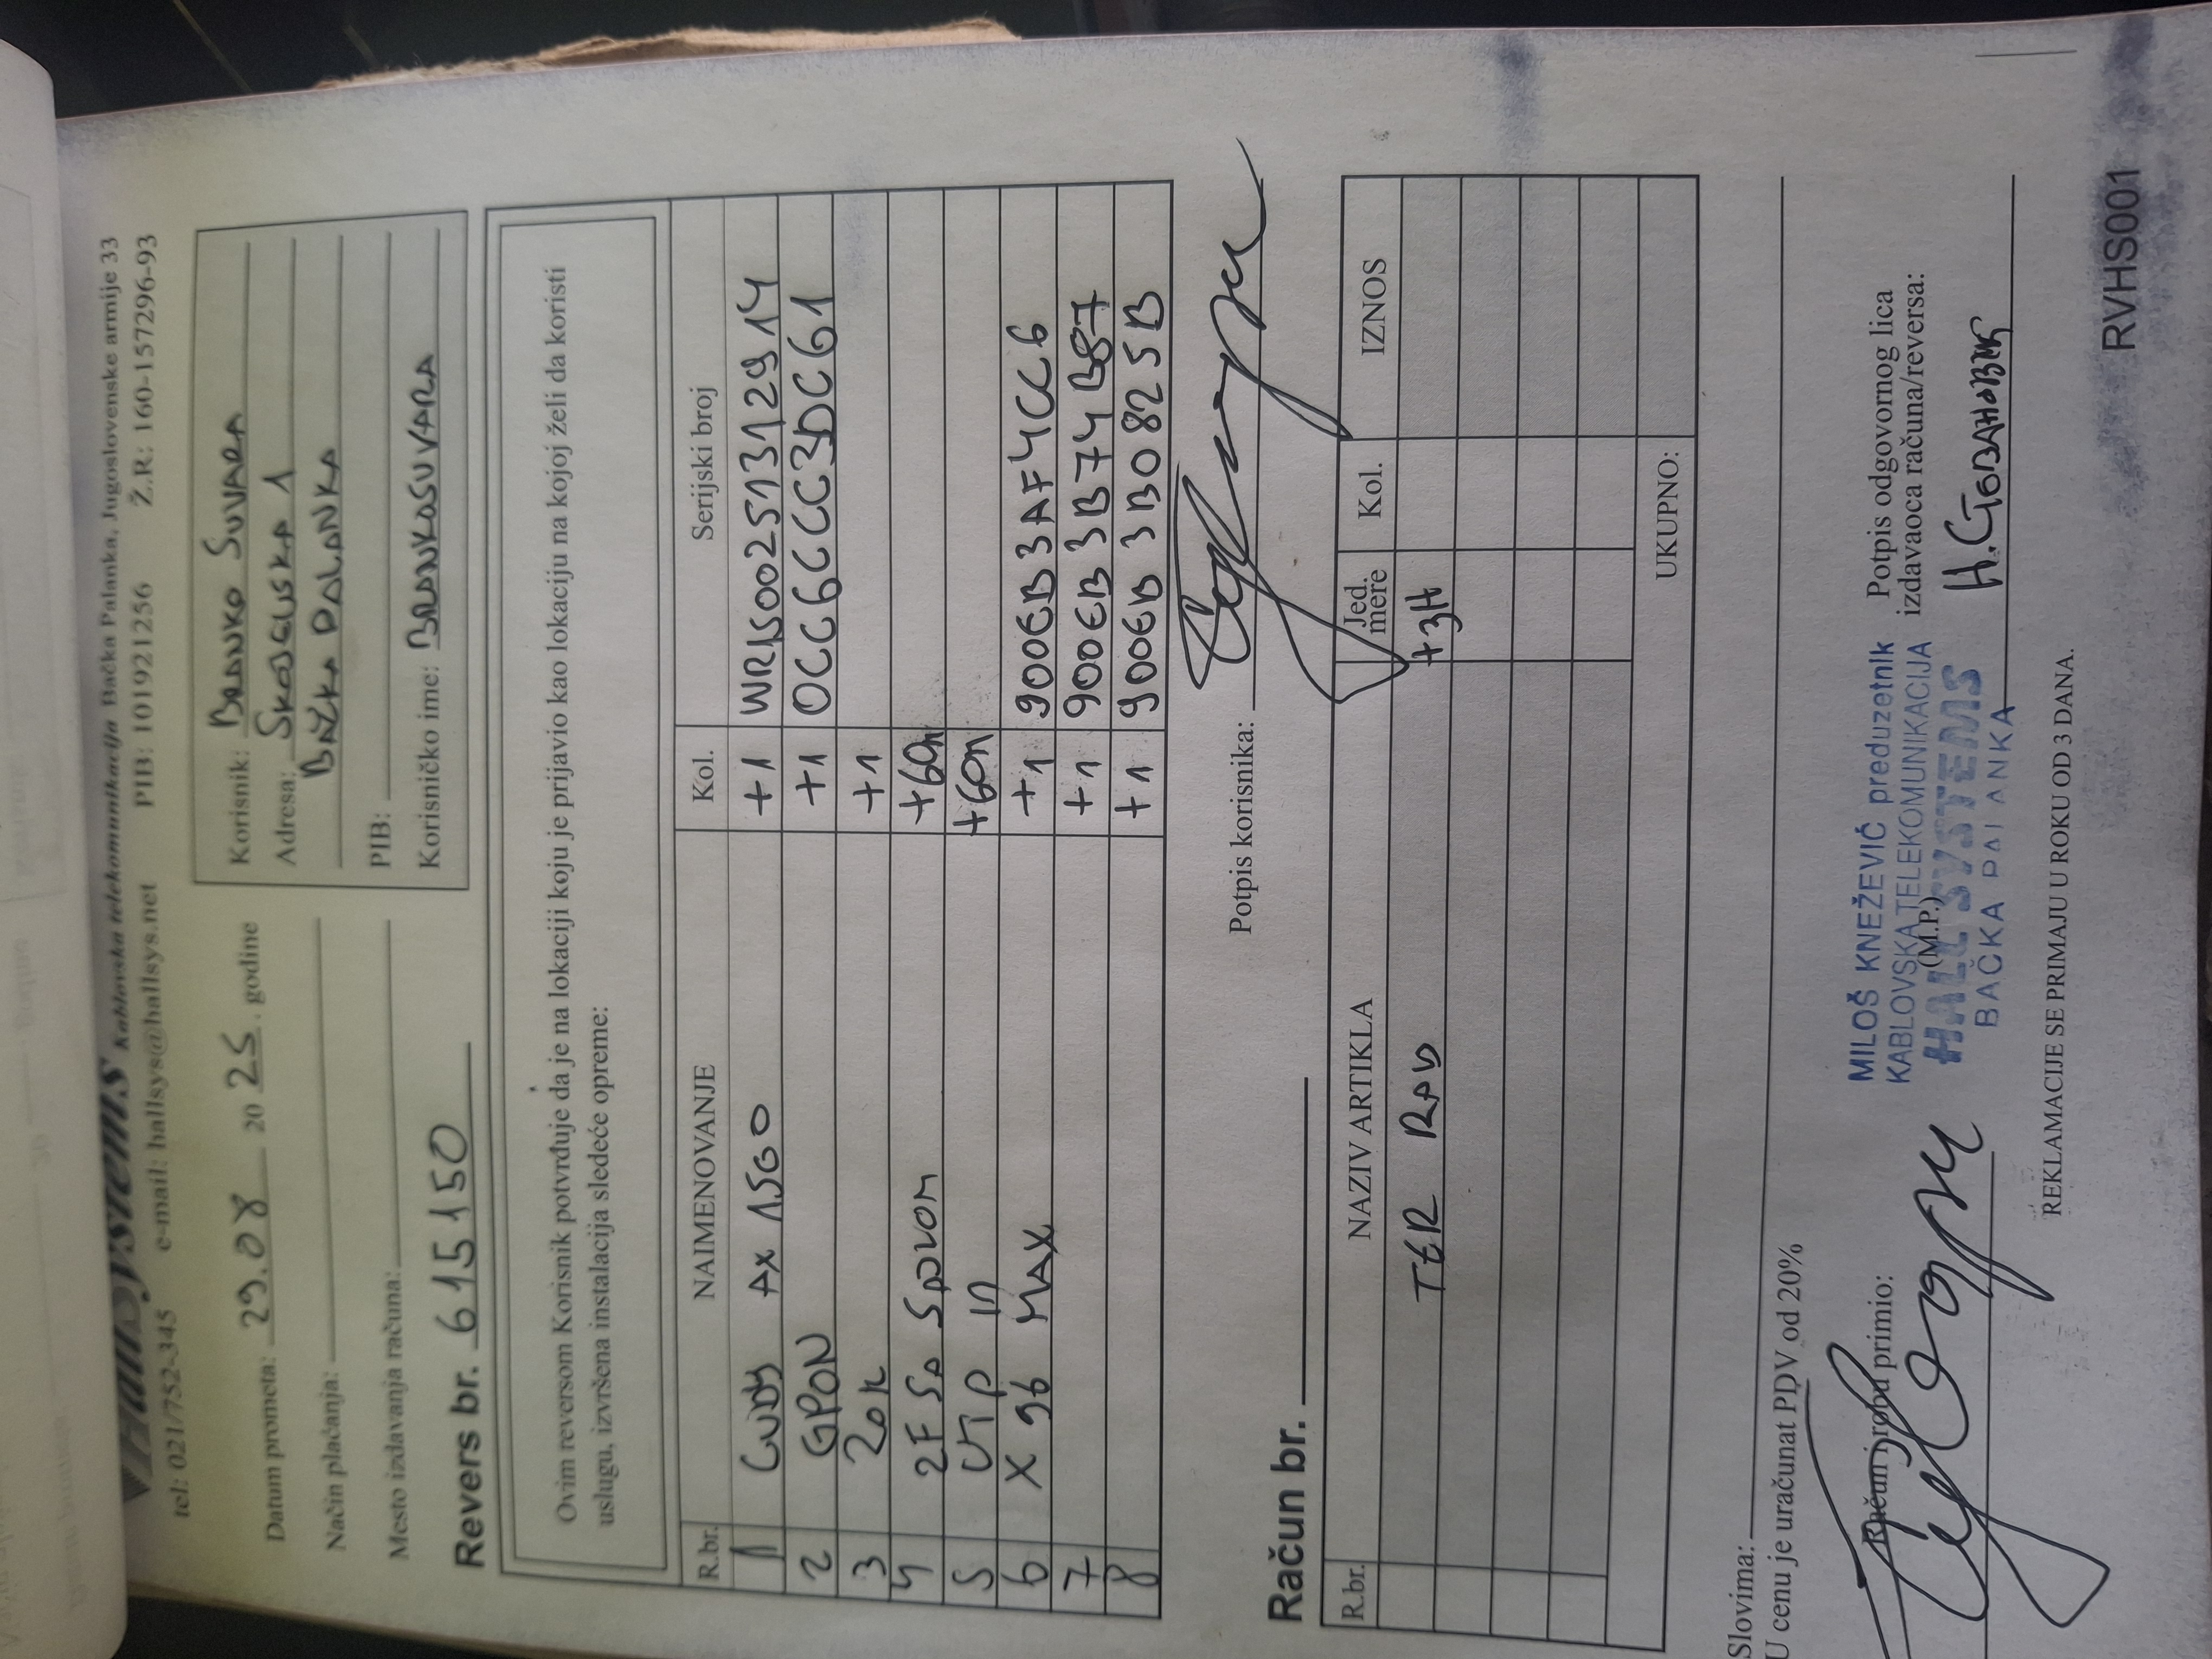 HallSystems Kablovska telekomunikacija Bačka Palanka, Jugoslovenske armije 33
tel: 021/752-345 e-mail: hallsys@hallsys.net PIB: 101921256 Ž.R: 160-157296-93
Datum prometa: 29.08 2025. godine
Način plaćanja:
Mesto izdavanja računa:
Revers br. 615150
Korisnik: BRANKO SUVARA
Adresa: SKOJEVSKA 1
BAČKA PALANKA
PIB:
Korisničko ime: BRANKOSUVARA
Ovim reversom Korisnik potvrđuje da je na lokaciji koju je prijavio kao lokaciju na kojoj želi da koristi
uslugu, izvršena instalacija sledeće opreme:
R.br. NAIMENOVANJE Kol. Serijski broj
1 CUDY AX 1500 +1 WR1500251312914
2 GPON +1 0CC6CCC3DC61
3 ZOK +1
4 2F SA SPOLOM +60m
5 UTP in +60m
6 X 96 MAX +1 900EB3AF4CC6
7 +1 900EB3B74B87
8 +1 900EB3B0825B
Potpis korisnika:
Račun br.
R.br. NAZIV ARTIKLA Jed. mere Kol. IZNOS
TER RAD +3H
UKUPNO:
Slovima:
U cenu je uračunat PDV od 20%
Račun i robu primio:
MILOŠ KNEŽEVIĆ preduzetnik
KABLOVSKA TELEKOMUNIKACIJA
(M.P.)
HALL SYSTEMS
BAČKA PALANKA
Potpis odgovornog lica
izdavaoca računa/reversa:
Н.Стевановић
REKLAMACIJE SE PRIMAJU U ROKU OD 3 DANA.
RVHS001